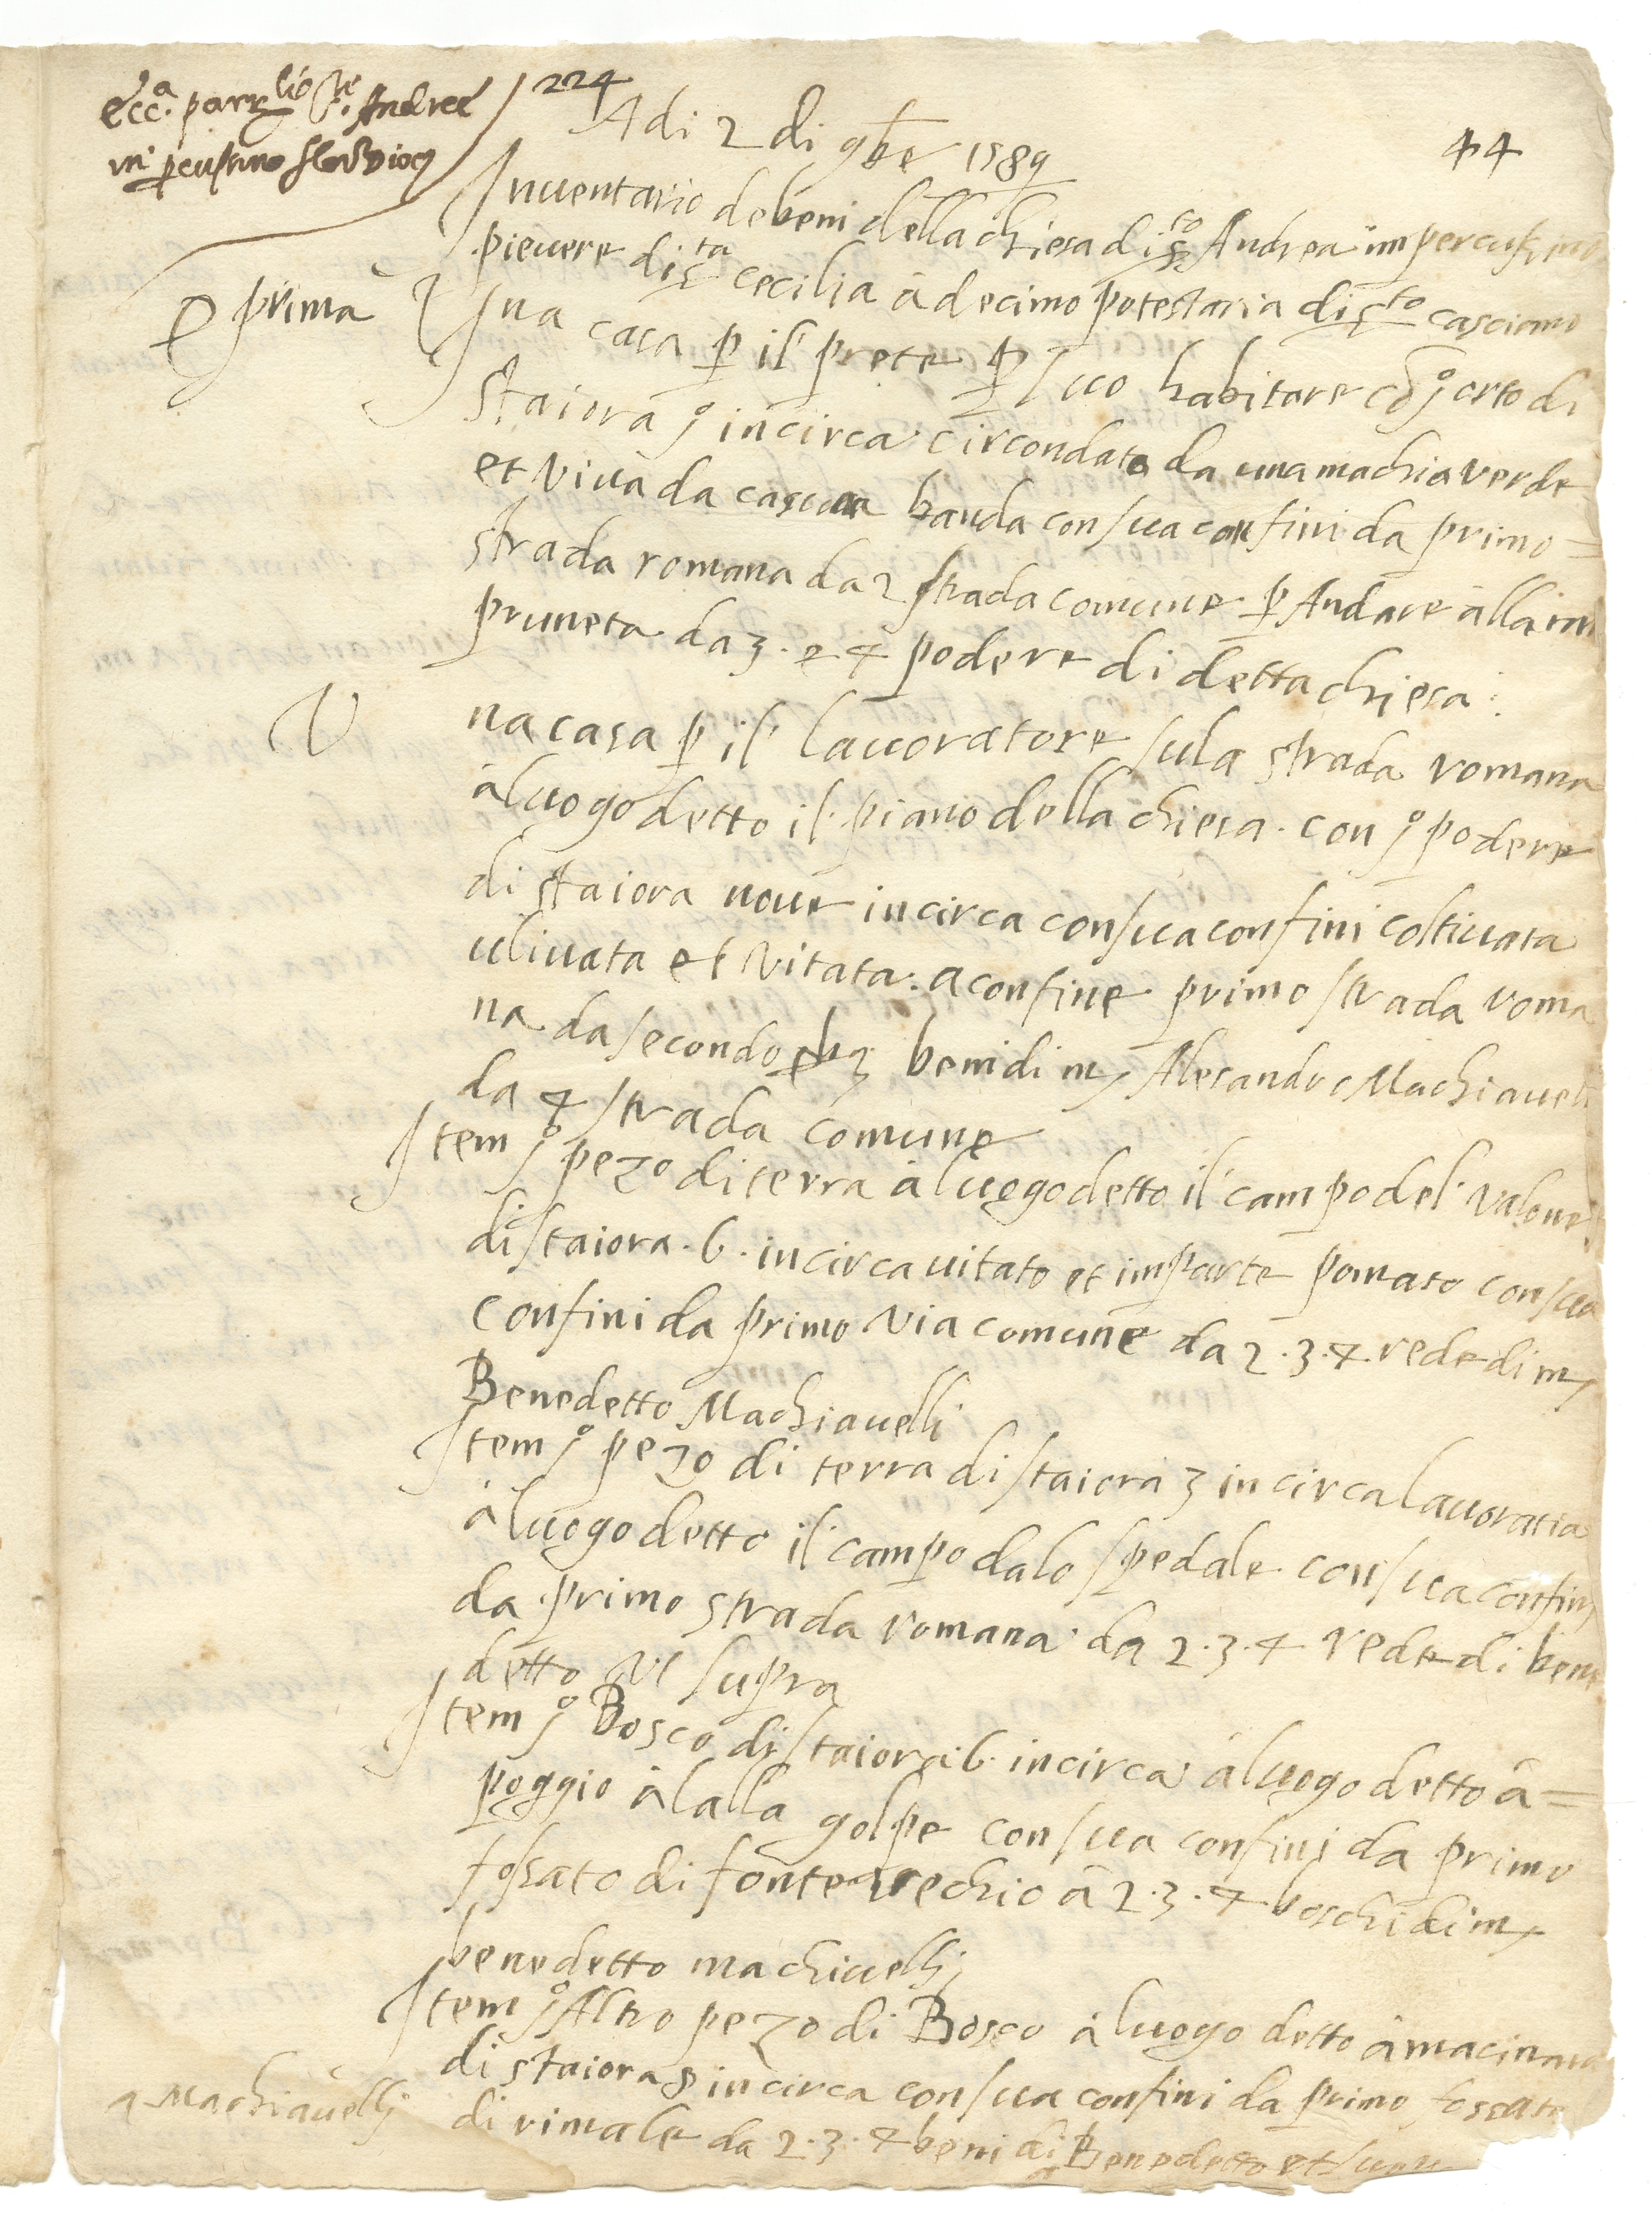 Ecc.a parr.lis S.ti Andree
in percusino
224
44
Adi 2 di 9bre 1589
Inuentario debeni della chiesa di s.to Andrea im percusino
pieuere di s.ta cecilia à decimo potestaria di s.to casciano
E prima Una casa p il prete p suo habitare cō j° orto di
staiora j° incirca circondato da una machia verde
et viua da banda con sua confini da primo =
strada romana da 2 strada comune p Andare alla im
pruneta da 3. e 4 podere di detta chiesa:
V na casa p il lauoratore sula strada romana
à luogo detto il piano della chiesa. con j° podere
di staiora noue incirca con sua confini coltiuata
uliuata et vitata. a confine primo strada roma
na da secondo benidi m Alesandro Machiauelli
da 4 strada comune
Item j° pezo di terra à luogo detto il campo del valone
di staiora .6. incirca uitato et imparte pomato con sua
confini da primo via comune da 2.3.4. rede di m
Benedetto Machiauelli
Item j° pezo di terra di staiora 3 incirca lauoratia
à luogo detto il campo dalo spedale con sua confini
da primo strada romana da 2.3.4 rede di bene
detto vt supra
Item j° Bosco di staiora .6. incirca à luogo detto à =
poggio à lalla golpe con sua confini da primo
fossato di fonte vechio à 2.3.4 boschi di m
benedetto machiuelli
Item j° Altro pezo di Bosco à luogo detto
di staiora 8 incirca con sua confini da primo fossato
di rimale da 2.3.4 beni di Benedetto et
Machiauelli